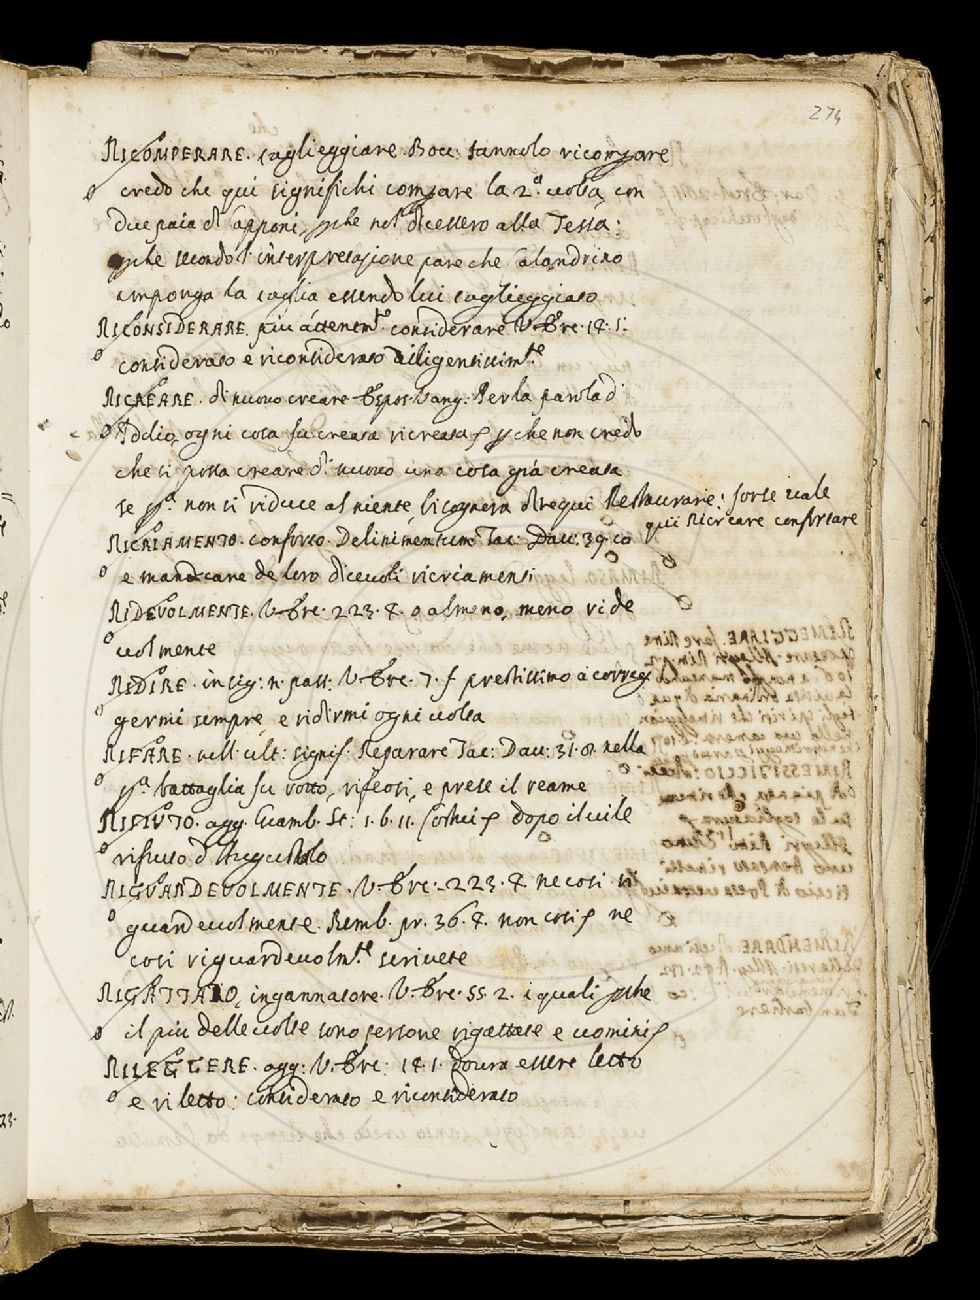 274
RICOMPERARE. taglieggiare. Bocc: fannolo ricomprare
credo che qui significhi comprare la 2.ª uolta, con
due paia di capponi, che nol dicessero alla Tessa:
che secondo l'interpretazione pare che Calandrino
imponga la taglia essendo lui taglieggiato
RICONSIDERARE. più attenem.te considerare V. Bre. 18. 1:
considerato e riconsiderato diligentissim.te
RICREARE. di nuouo creare Espos. Vang. Per la parola d'
Iddio ogni cosa fu creata ricreata che non credo
che si possa creare di nuouo una cosa già creata
se p.ª non si riduce al niente, bisognera dire qui Restaurare: forse uale
qui Ricreare confortare
RICRIAMENTO. conforto. Delinimentum Tac: Dau: 39. co
e mancare de loro diceuoli ricriamenti
RIDEVOLMENTE. V. Bre. 223. 8. o almeno, meno ride
uolmente
RIDIRE. in sig: n. pass: V. Bre. 7. prestissimo a correg
germi sempre, e ridirmi ogni uolta
RIFARE. nell' ult: signif. Reparare Tac: Dau: 31. 8. nella
p.ª battaglia fu rotto, rifecesi, e prese il reame
RIFIUTO. agg. Guamb. St: 1. b. 11. Costui dopo il uile
rifiuto d'Augustolo
RIGUARDEVOLMENTE. V. Bre. 223. 8. ne cosi ri
guardeuolmente. Bemb. pr. 36. 8. non cosi ne
cosi riguardeuolm.te scriuete
RIGATTATO, ingannatore. V. Bre. 55. 2. i quali perche
il più delle uolte sono persone rigattate e uomini
RILEGGERE. agg: V. Bre: 18. 1. doura essere letto
e riletto: considerato e riconsiderato